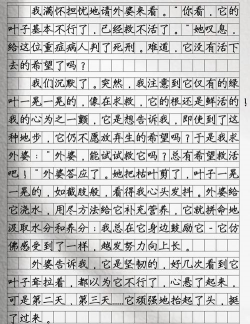 我满怀担忧地请外婆来看。“你看,它的
叶子基本不行了,已经救不活了。”她叹息,
给这位重症病人判了死刑,难道,它没有活下
去的希望了吗?
我们沉默了。突然,我注意到它仅有的绿
叶一晃一晃的,像在求救,它的根还是鲜活的!
我的心为之一颤,它是想告诉我,即使到了这
种地步,它仍不愿放弃生的希望吗?于是我求
外婆:“外婆,能试试救它吗?总有希望救活
吧!”外婆答应了。她把枯叶剪了,叶子一晃
一晃的,如截肢般,看得我心头发抖。外婆给
它浇水,用尽方法给它补充营养。它就拼命地
汲取水分和养分;我总在它身边鼓励它,它仿
佛感受到了一样,越发努力向上长。
外婆告诉我,它是坚韧的,好几次看到它
叶子耷拉着,都以为它不行了,心悬了起来,
可是第二天,第三天……它顽强地抬起了头,挺
了过来。